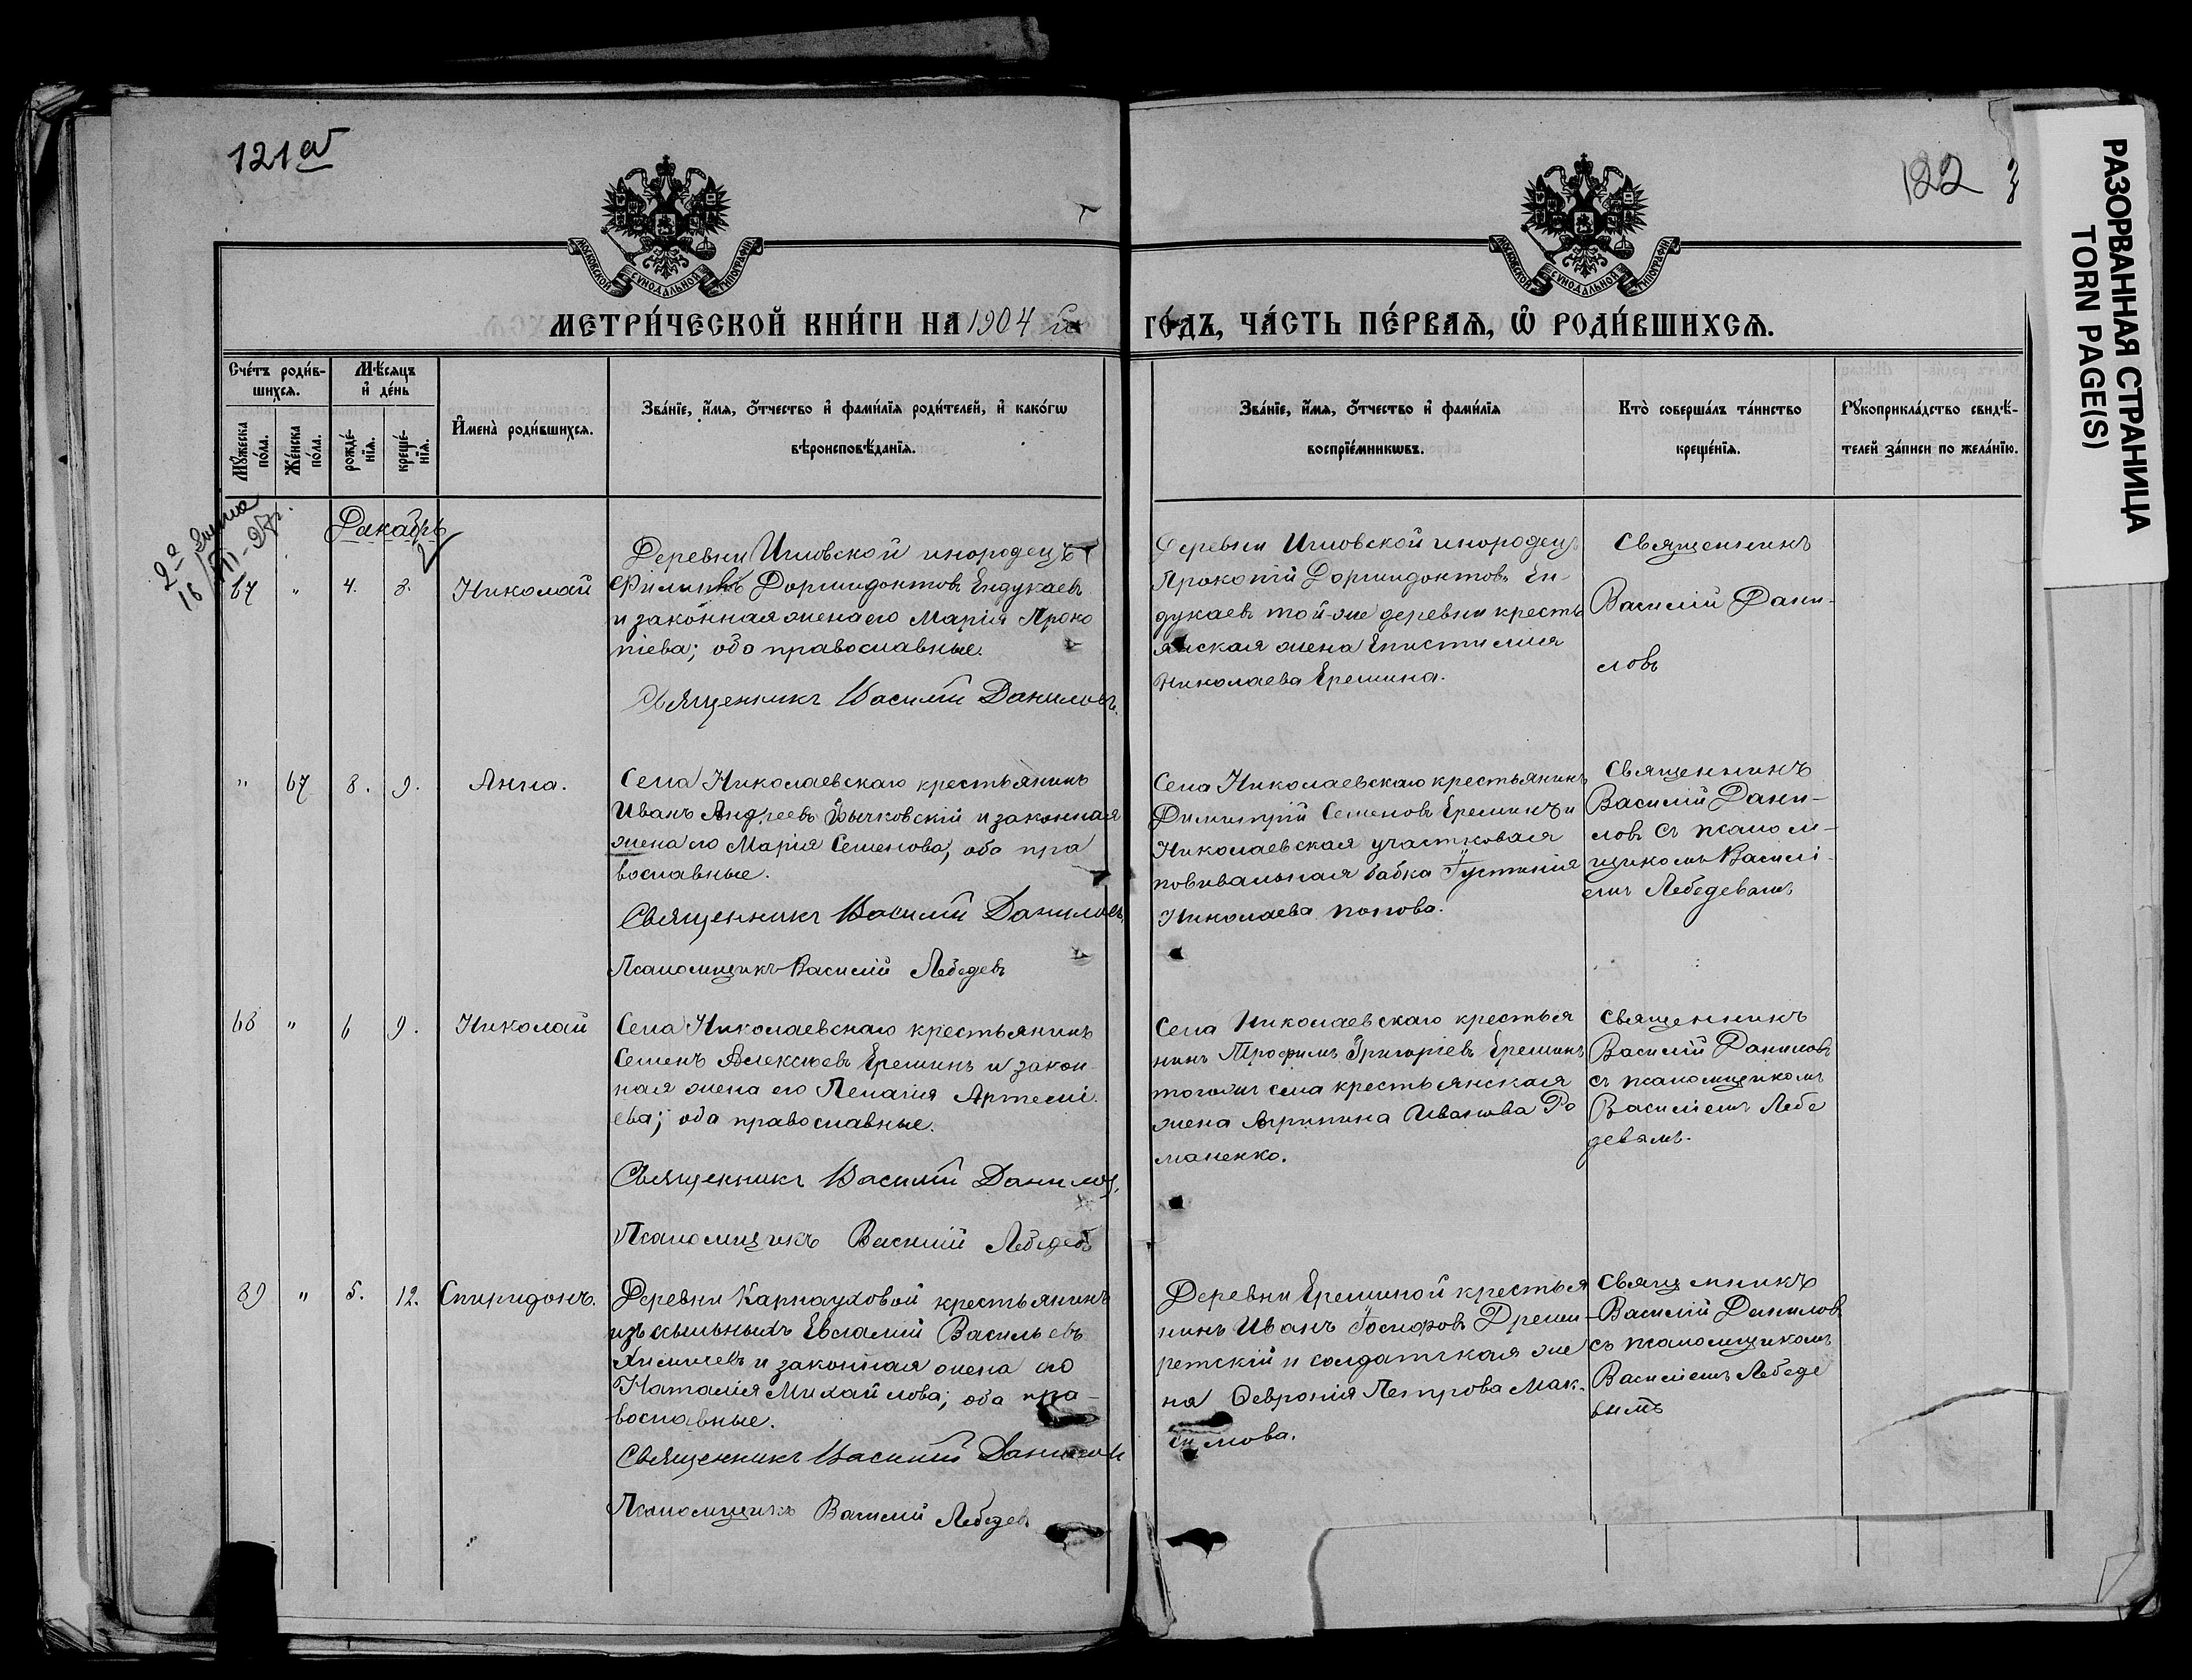 121 об
122
РАЗОРВАННАЯ СТРАНИЦА
TORN PAGE(S)
МОСКОВСКОЙ СѴНОДАЛЬНОЙ ТИПОГРАФІИ
МОСКОВСКОЙ СѴНОДАЛЬНОЙ ТИПОГРАФІИ
МЕТРИ́ЧЕСКОЙ КНИ́ГИ НА 1904 й
ГО́ДЪ, ЧА́СТЬ ПЕ́РВАѦ, Ѽ РОДИ́ВШИХСѦ.
Сче́тъ роди́в-
шихсѧ.
Мꙋ́жеска по́ла.
Же́нска по́ла.
Мѣ́сѧцъ и҆ де́нь
рожде́-
нїѧ.
креще́-
нїѧ.
И҆мена̀ роди́вшихсѧ.
Зва́нїе, и҆́мѧ, ѻ҆́тчество и҆ фами́лїѧ роди́телей, и҆ како́гѡ
вѣроисповѣ́данїѧ.
Зва́нїе, и҆́мѧ, ѻ҆́тчество и҆ фами́лїѧ
воспрїе́мникѡвъ.
Кто̀ соверша́лъ та́инство
креще́нїѧ.
Рꙋкоприкла́дство свидѣ́-
телей за́писи по жела́нїю.
Декабрь
67 " 4. 8. Николай
Деревни Ишовской инородецъ
Филиппъ Дормидонтовъ Ендукаевъ
и законная жена его Марія Проко
піева; оба православные.
Священникъ Василій Даниловъ.
Деревни Ишовской инородецъ
Прокопій Дормидонтовъ Ен-
дукаевъ той-же деревни кресть
янская жена Епистимія
Николаева Еремина.
Священникъ
Василій Дани-
ловъ
" 67 8. 9. Анна.
Села Николаевскаго крестьянинъ
Иванъ Андреевъ Бычковскій и законная
жена его Марія Семенова, оба пра
вославные.
Священникъ Василій Даниловъ.
Псаломщикъ Василій Лебедевъ
Села Николаевскаго крестьянинъ
Димитрій Семеновъ Ереминъ и
Николаевская участковая
повивальная бабка Іустинія
Николаева Попова.
Священникъ
Василій Дани-
ловъ съ псалом-
щикомъ Василі-
емъ Лебедевымъ
68 " 6 9. Николай
Села Николаевскаго крестьянинъ
Семенъ Алексѣевъ Ереминъ и закон-
ная жена его Пелагія Артемі
ева; оба православные.
Священникъ Василій Даниловъ.
Псаломщикъ Василій Лебедевъ
Села Николаевскаго крестья
нинъ Трофимъ Григоріевъ Ереминъ
тогоже села крестьянская
жена Агрипина Иванова Ро
маненко.
Священникъ
Василій Даниловъ
съ псаломщикомъ
Василіемъ Лебе
девымъ.
89 " 5. 12. Спиридонъ.
Деревни Карнауховой крестьянинъ
изъ ссыльныхъ Евлампій Васильевъ
и законная жена его
Наталія Михайлова; оба пра-
вославные.
Священникъ Василій Даниловъ
Псаломщикъ Василій Лебедевъ
Деревни Ереминой крестья
нинъ Иванъ Іосифовъ
и солдатская же
на Ѳевронія Петрова Мак-
симова.
Священникъ
Василій Даниловъ
съ псаломщикомъ
Василіемъ Лебеде
вымъ